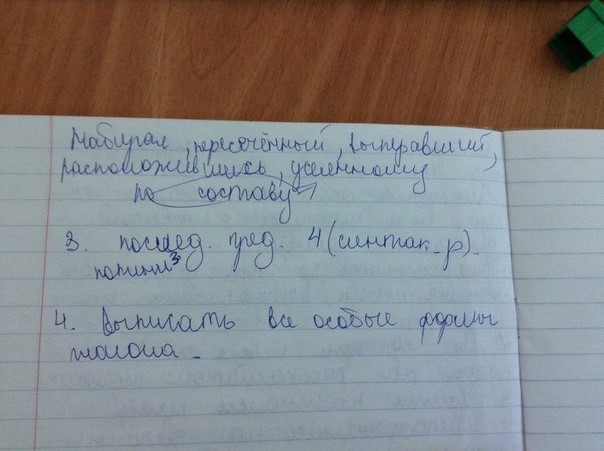 Набирал, пересечённый, вытравший,
расположившись, уселенному
по составу
3. послед. пред. 4 (синтак. р).
4. Выписать все особые формы
глагола.